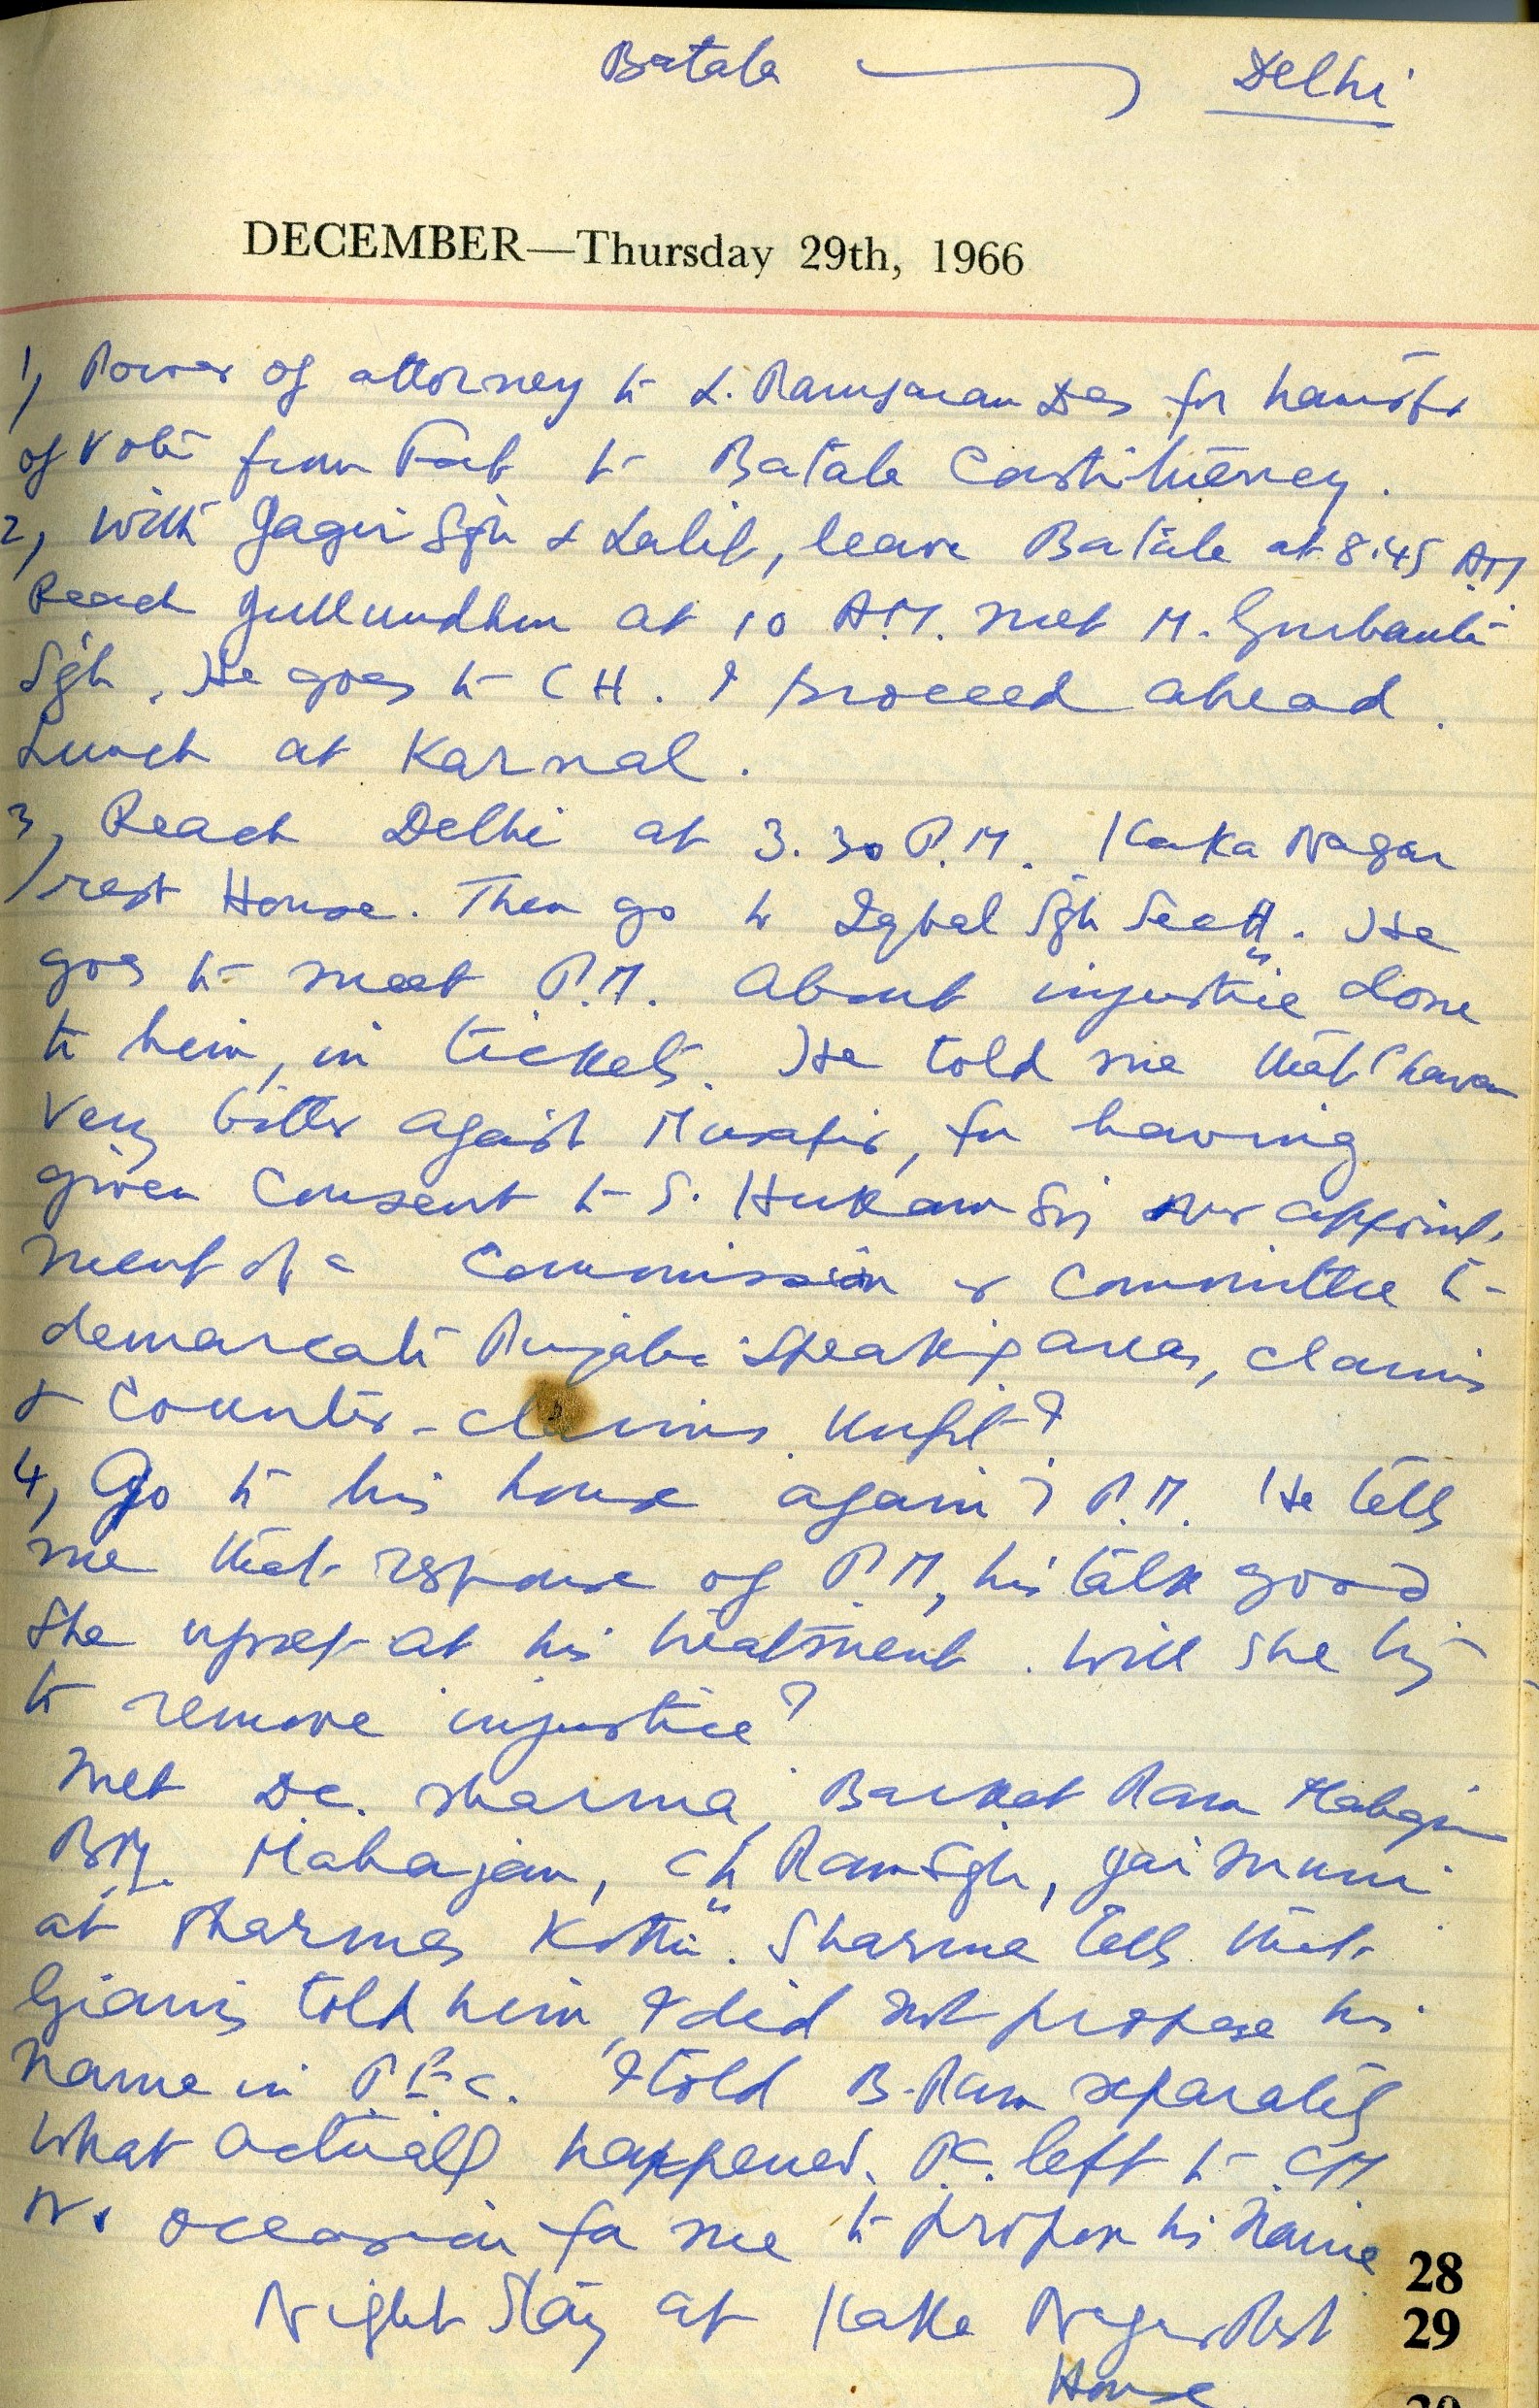 Batala Delhi
DECEMBER—Thursday 29th, 1966
1, Power of attorney to L. Ramsaran Das for transfer
of Vote from to Batala Constituency.
2, With Jagir Sgh & Lalit, leave Batala at 8.45 AM
Reach Jullundhur at 10 A.M. meet M. Gurbanta
Sgh. He goes to CH. I proceed ahead.
Lunch at Karnal.
3, Reach Delhi at 3.30 P.M. Kaka Nagar
rest House. Then go to Iqbal Sgh He
goes to meet P.M. about injustice done
to him, in tickets. He told me that Chavan
Very bitter against Musafir, for having
given Consent to S. Hukam appoint-
ment of a Commission or Committee to
demarcate Punjabi Speaking areas, claims
& Counter-claims. Unfit?
4, Go to his house again 7 P.M. He tells
me that response of P.M, his talk good
She upset at his treatment. Will she try
to remove injustice?
Met D.C. Sharma, Barkat Ram
Mahajan, Ch Ram Sgh, Jai Muni
at Sharmas Kothi. Sharma tells that
Giani told him, I did not propose his
name in P.E.C. I told B. Ram separately
What actually happened. left to CM
No occasion for me to propose his Name
Night Stay at Kaka Nagar Rest
House.
28
29